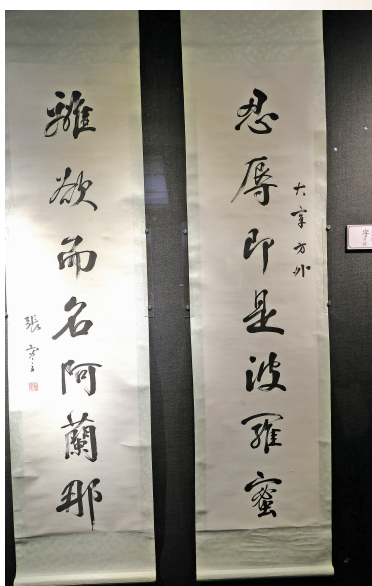 忍辱即是波羅蜜
大宰方外
離欲而名阿蘭那
張宰